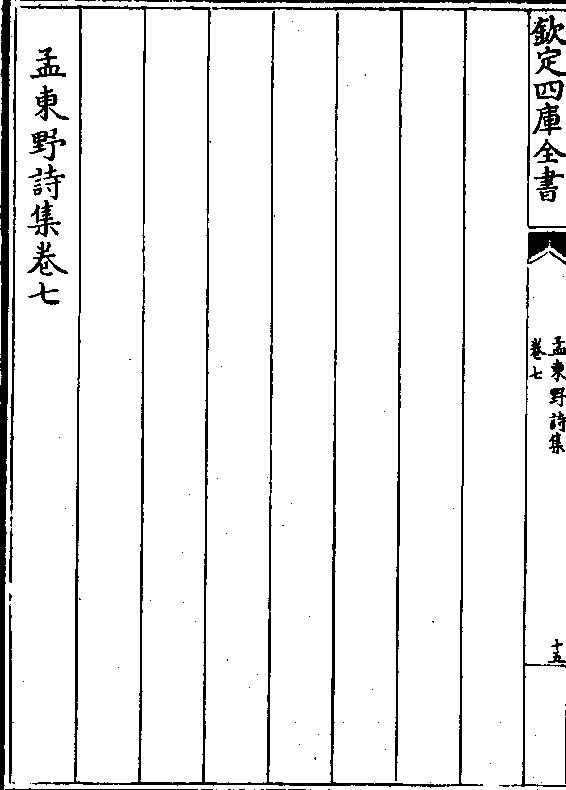 欽定四庫全書
孟東野詩集
卷七
十五
孟東野詩集卷七